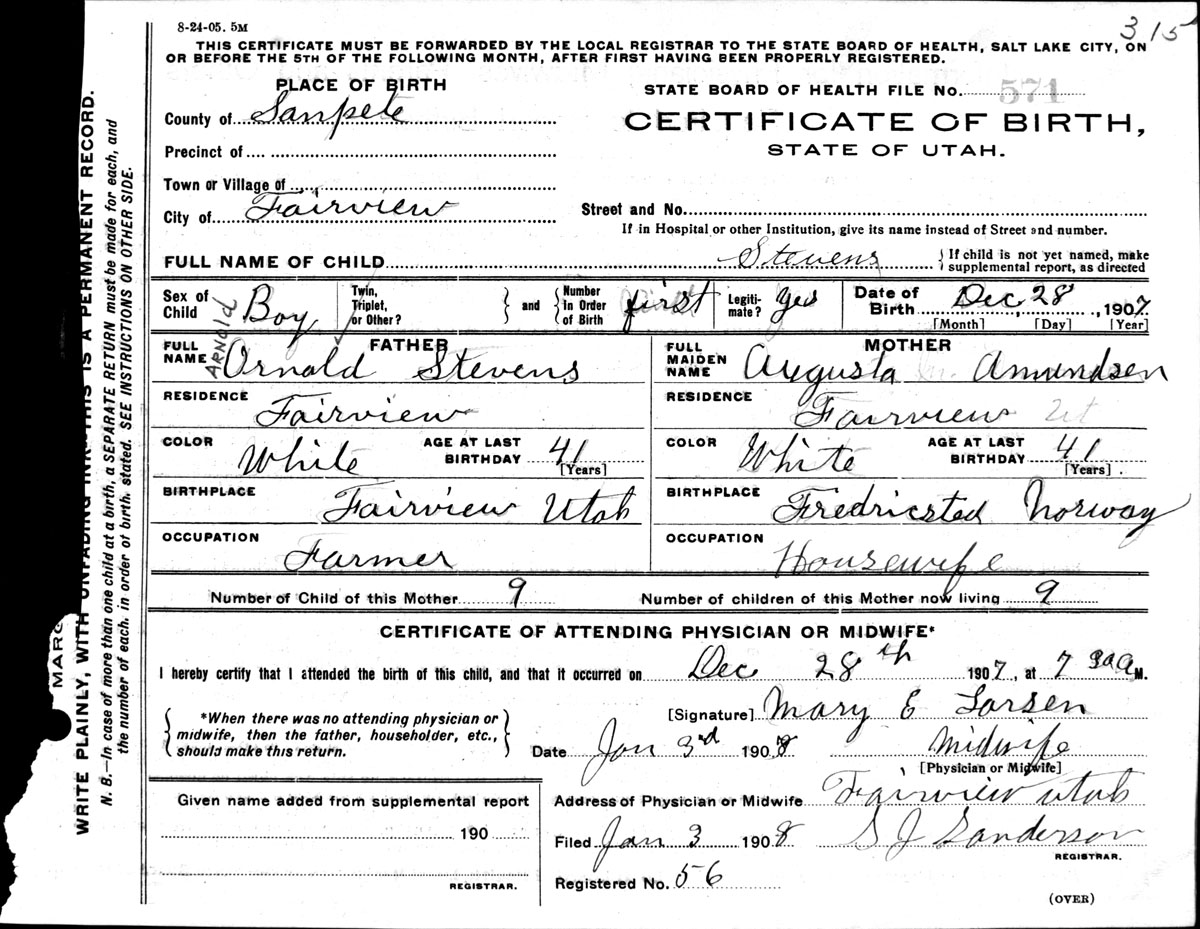 8-24-05. 5M
315
THIS CERTIFICATE MUST BE FORWARDED BY THE LOCAL REGISTRAR TO THE STATE BOARD OF HEALTH, SALT LAKE CITY, ON
OR BEFORE THE 5TH OF THE FOLLOWING MONTH, AFTER FIRST HAVING BEEN PROPERLY REGISTERED.
PLACE OF BIRTH
STATE BOARD OF HEALTH FILE No. 571
County of Sanpete
CERTIFICATE OF BIRTH,
STATE OF UTAH.
Precinct of
Town or Village of
City of Fairview
Street and No.
If in Hospital or other Institution, give its name instead of Street and number.
FULL NAME OF CHILD Stevens { If child is not yet named, make
supplemental report, as directed
Sex of Child Boy
Twin, Triplet, or Other? } and { Number In Order of Birth first
Legiti-mate? yes
Date of Birth Dec. 28, 1907
[Month] [Day] [Year]
FATHER
FULL NAME ARNOLD Ornold Stevens
MOTHER
FULL MAIDEN NAME Augusta Amundsen
RESIDENCE Fairview
RESIDENCE Fairview Ut
COLOR White AGE AT LAST BIRTHDAY 41 [Years]
COLOR White AGE AT LAST BIRTHDAY 41 [Years].
BIRTHPLACE Fairview Utah
BIRTHPLACE Fredricsted Norway
OCCUPATION Farmer
OCCUPATION Housewife
Number of Child of this Mother 9 Number of children of this Mother now living 9
CERTIFICATE OF ATTENDING PHYSICIAN OR MIDWIFE*
I hereby certify that I attended the birth of this child, and that it occurred on Dec 28th 1907, at 7 30 A M.
{ *When there was no attending physician or
midwife, then the father, householder, etc.,
should make this return. }
[Signature] Mary E Larsen
Date Jan 3rd 1908 Midwife
[Physician or Midwife]
Given name added from supplemental report
190
REGISTRAR.
Address of Physician or Midwife Fairview Utah
Filed Jan 3 1908 S J Sanderson
REGISTRAR.
Registered No. 56
(OVER)
MARG
WRITE PLAINLY, WITH UNFADING INK—THIS IS A PERMANENT RECORD.
N. B.—In case of more than one child at a birth, a SEPARATE RETURN must be made for each, and
the number of each, in order of birth, stated. SEE INSTRUCTIONS ON OTHER SIDE.